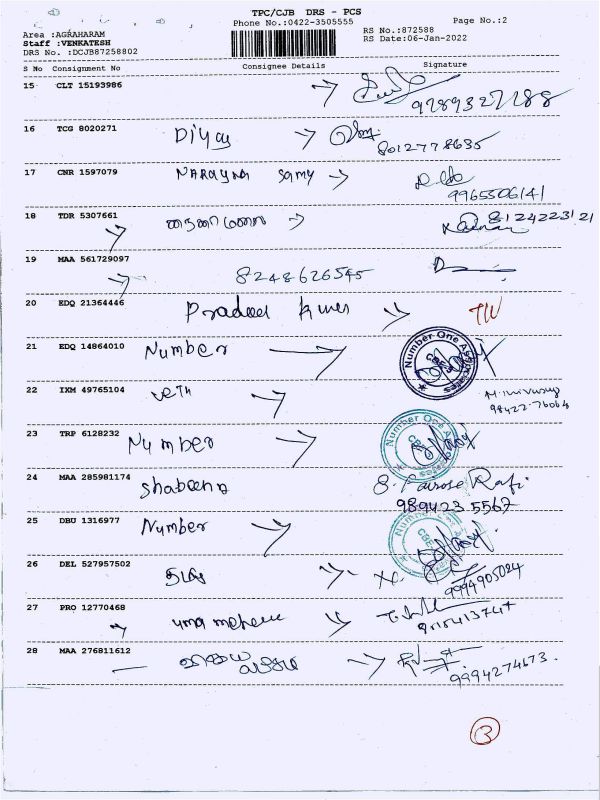 TPC/CJB DRS - PCS
Phone No.:0422-3505555
Page No.:2
Area :AGRAHARAM
RS No.:872588
Staff :VENKATESH
RS Date:06-Jan-2022
DRS No. :DCJB87258802
S No Consignment No Consignee Details Signature
15 CLT 15193986
16 TCG 8020271 Diya
8012778635
17 CNR 1597079 Narayna samy
9965506141
18 TDR 5307661
8124223121
19 MAA 561729097 8248626545
20 EDQ 21364446 Pradeep kumar
21 EDQ 14864010 Number
Number One Associates
CBE
22 IXM 49765104
98422-76064
23 TRP 6128232 Number
Number One Associates
CBE
24 MAA 285981174 Shabeena S. Pairose Rafi
989423 5567
25 DBU 1316977 Number
Number One Associates
CBE
26 DEL 527957502
9994905024
27 PRO 12770468 uma
28 MAA 276811612
9994274673.
3